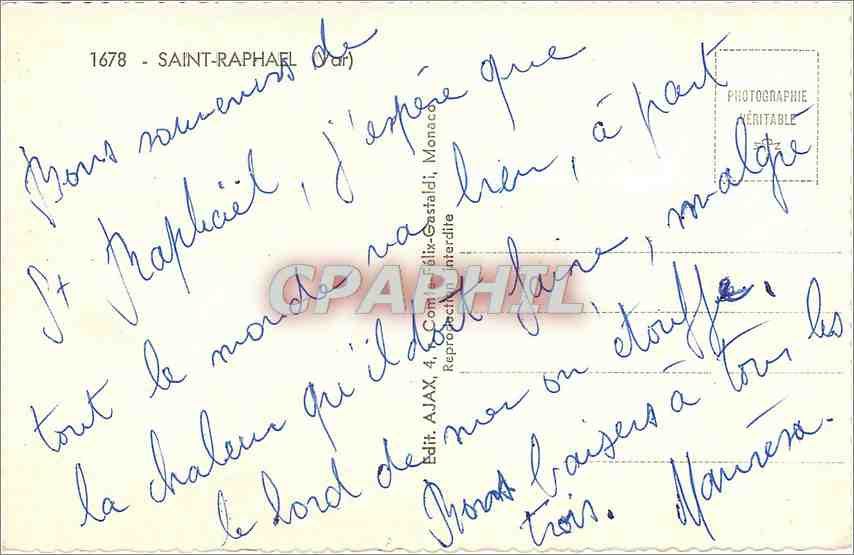 1678 - SAINT-RAPHAEL (Var)
PHOTOGRAPHIE
VÉRITABLE
Bons souvenirs de
St Raphaël, j'espère que
tout le monde va bien, à part
la chaleur qu'il doit faire, malgré
le bord de mer on étouffe.
Bons baisers à tous les
trois.
Edit. AJAX, 4, r. Comte-Félix-Gastaldi, Monaco
Reproduction interdite
CPAPHIL